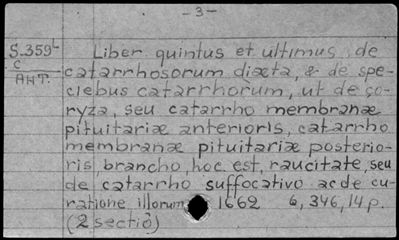 - 3 -
S.359b Liber quintus et ultimus de
C
AHT. catarrhosorum diæta, & de spe-
ciebus catarrhorum, ut de co-
ryza, seu catarrho membranæ
pituitariæ anterioris, catarrho
membranæ pituitariæ posterio-
ris, brancho, hoc est, raucitate, seu
de catarrho suffocativo ac de cu-
ratione illorum 1662 6, 346, 14 p.
(2 sectiô)